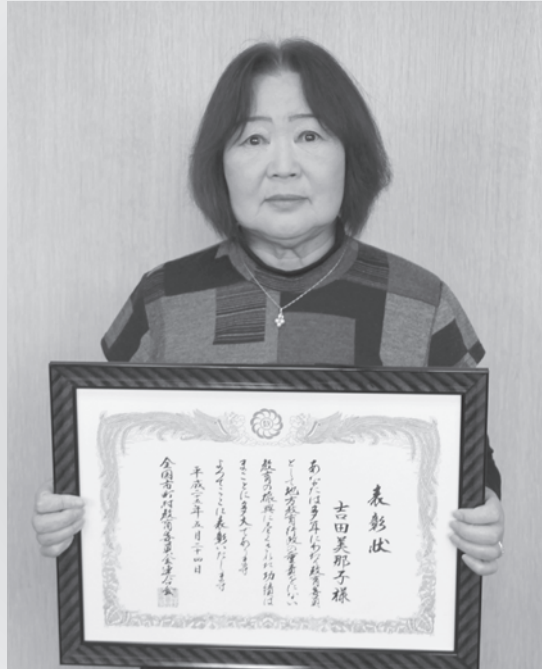 表彰状
吉田美那子様
あなたは多年にわたり教育委員
として地方教育行政の重責をにない
教育の振興に尽くされた功績は
まことに多大であります
よってここに表彰いたします
平成二十五年五月二十四日
全国市町村教育委員会連合会